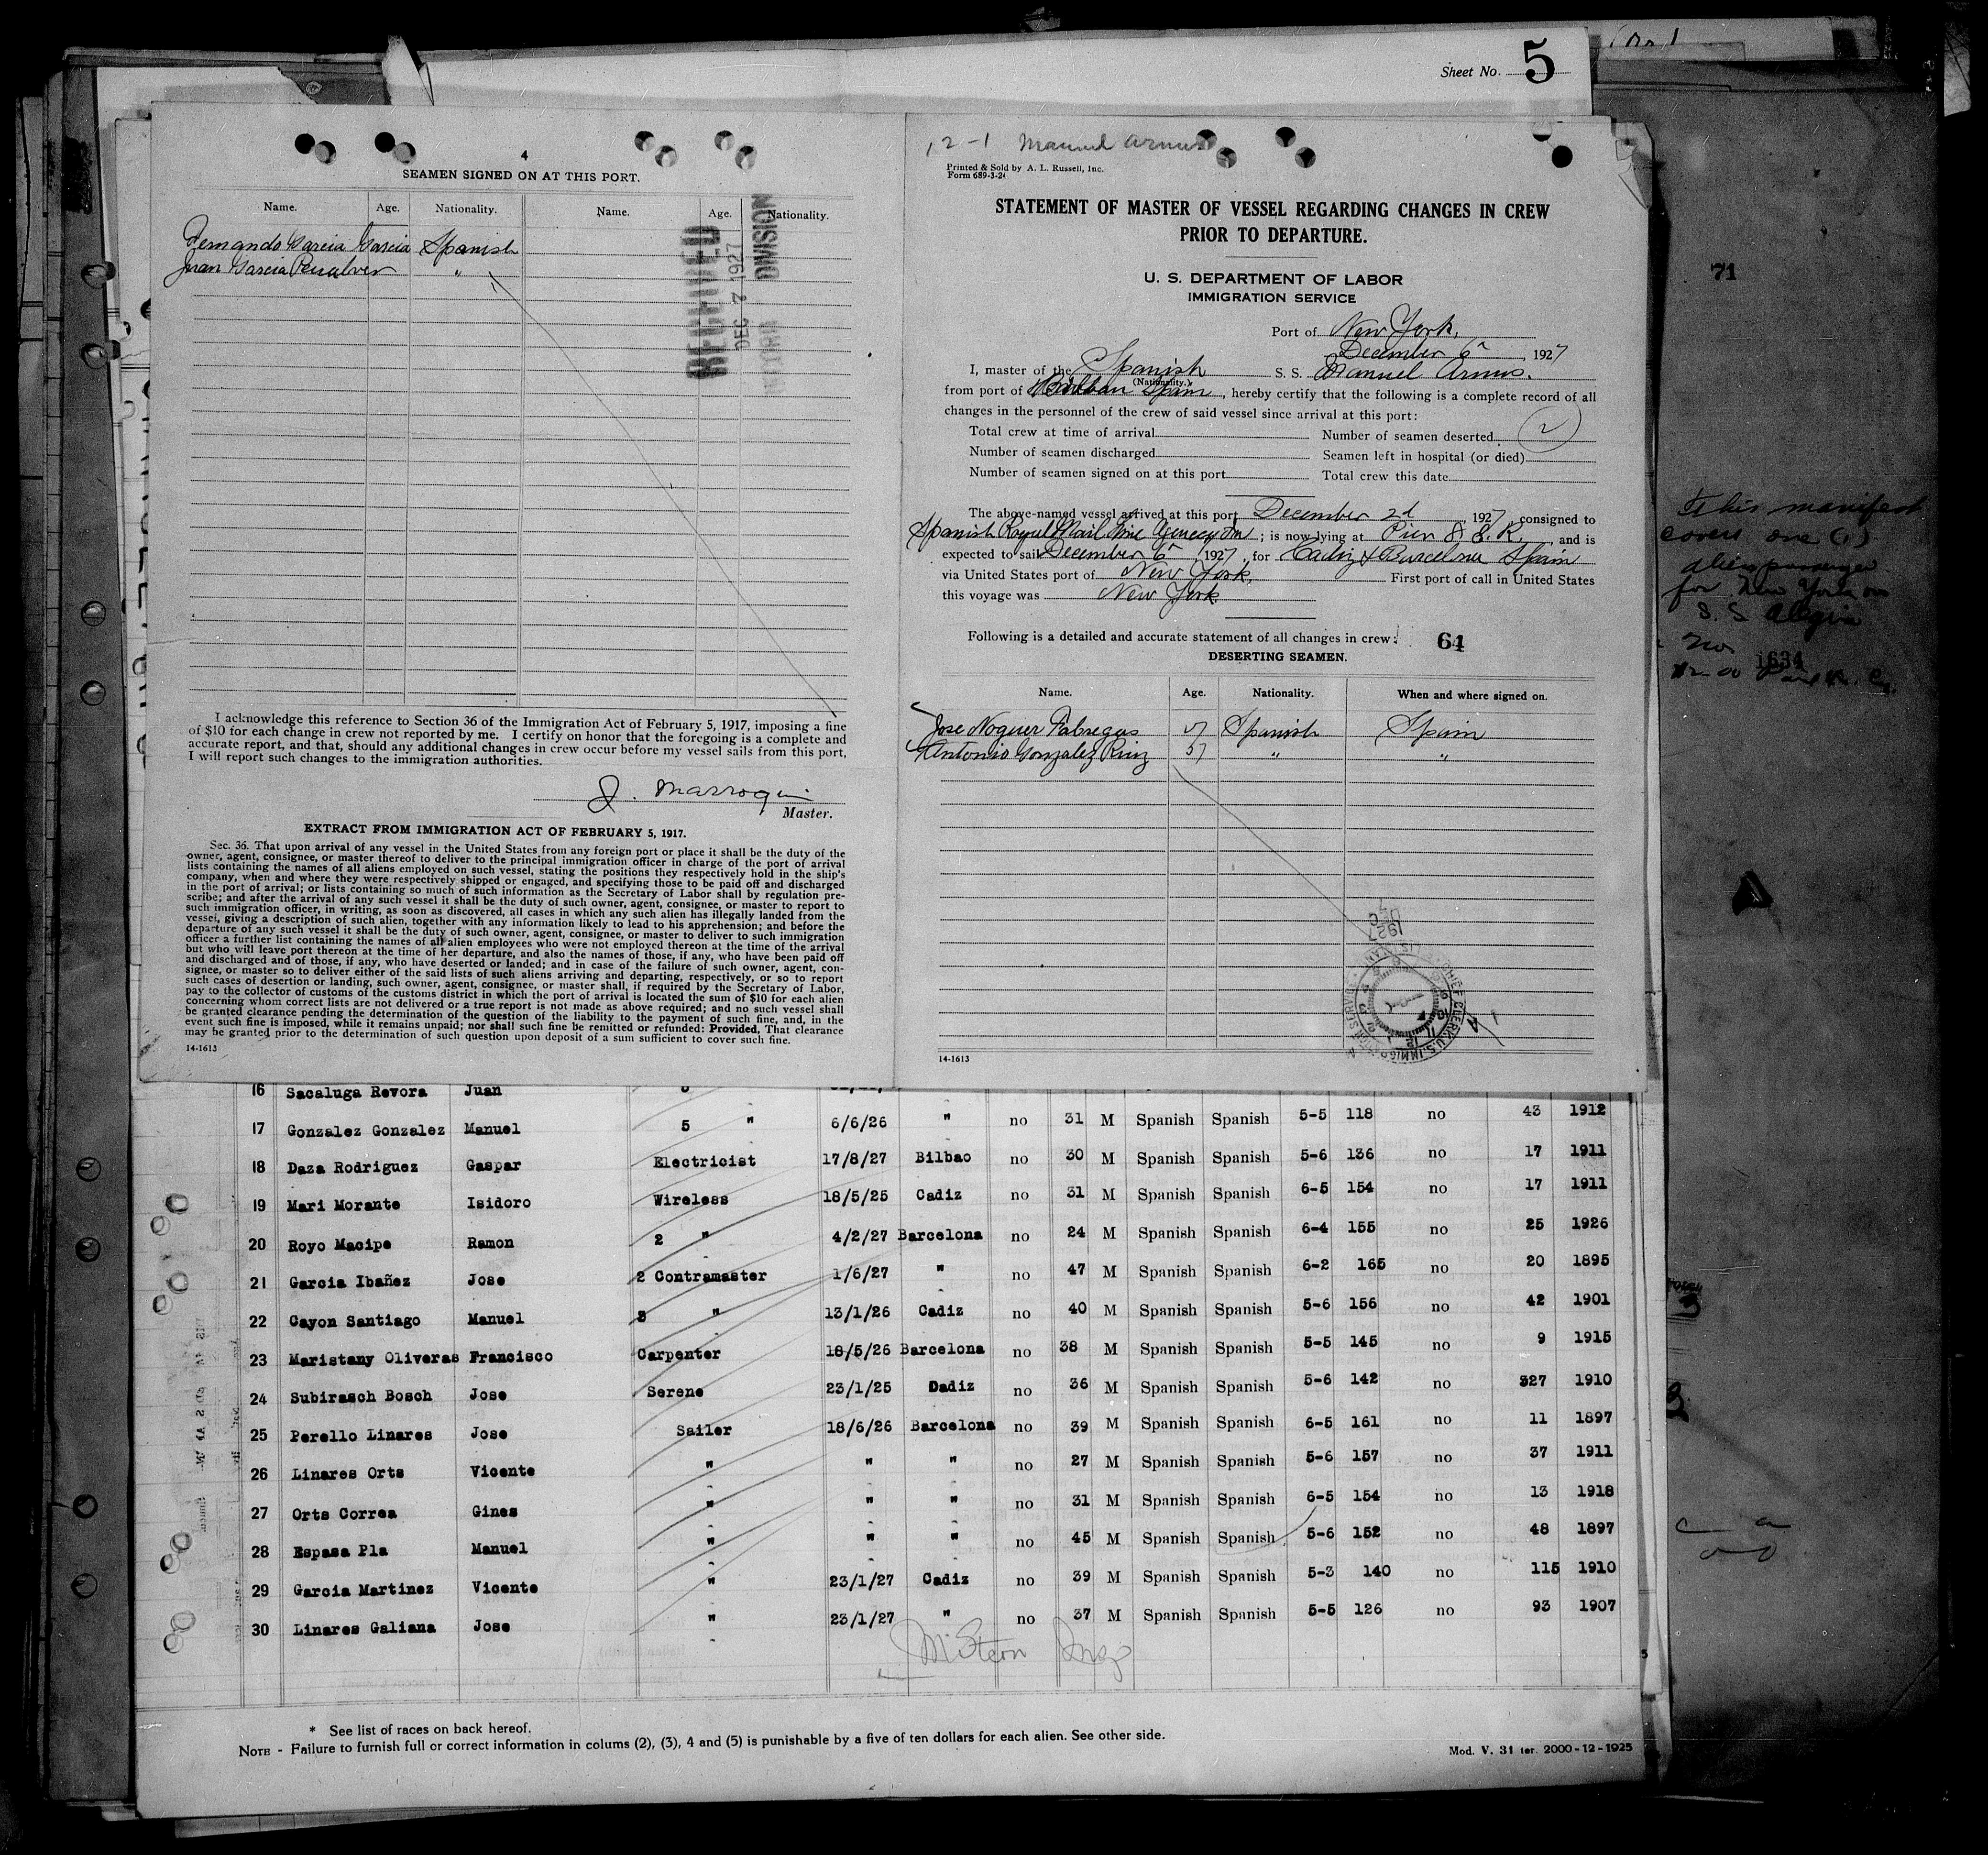 Sheet No. 5
4
SEAMEN SIGNED ON AT THIS PORT.
Name. Age. Nationality. Name. Age. Nationality.
Fernando Garcia Garcia Spanish
Juan Garcia Penalver "
RECEIVED
DEC 7 1927
DIVISION
I acknowledge this reference to Section 36 of the Immigration Act of February 5, 1917, imposing a fine
of $10 for each change in crew not reported by me. I certify on honor that the foregoing is a complete and
accurate report, and that, should any additional changes in crew occur before my vessel sails from this port,
I will report such changes to the immigration authorities.
J. Marroquin
Master.
EXTRACT FROM IMMIGRATION ACT OF FEBRUARY 5, 1917.
Sec. 36. That upon arrival of any vessel in the United States from any foreign port or place it shall be the duty of the
owner, agent, consignee, or master thereof to deliver to the principal immigration officer in charge of the port of arrival
lists containing the names of all aliens employed on such vessel, stating the positions they respectively hold in the ship's
company, when and where they were respectively shipped or engaged, and specifying those to be paid off and discharged
in the port of arrival; or lists containing so much of such information as the Secretary of Labor shall by regulation pre-
scribe; and after the arrival of any such vessel it shall be the duty of such owner, agent, consignee, or master to report to
such immigration officer, in writing, as soon as discovered, all cases in which any such alien has illegally landed from the
vessel, giving a description of such alien, together with any information likely to lead to his apprehension; and before the
departure of any such vessel it shall be the duty of such owner, agent, consignee, or master to deliver to such immigration
officer a further list containing the names of all alien employees who were not employed thereon at the time of the arrival
but who will leave port thereon at the time of her departure, and also the names of those, if any, who have been paid off
and discharged and of those, if any, who have deserted or landed; and in case of the failure of such owner, agent, con-
signee, or master so to deliver either of the said lists of such aliens arriving and departing, respectively, or so to report
such cases of desertion or landing, such owner, agent, consignee, or master shall, if required by the Secretary of Labor,
pay to the collector of customs of the customs district in which the port of arrival is located the sum of $10 for each alien
concerning whom correct lists are not delivered or a true report is not made as above required; and no such vessel shall
be granted clearance pending the determination of the question of the liability to the payment of such fine, and, in the
event such fine is imposed, while it remains unpaid; nor shall such fine be remitted or refunded: Provided, That clearance
may be granted prior to the determination of such question upon deposit of a sum sufficient to cover such fine.
14-1613
12-1 Manuel Arnus
Printed & Sold by A. L. Russell, Inc.
Form 689-3-24
STATEMENT OF MASTER OF VESSEL REGARDING CHANGES IN CREW
PRIOR TO DEPARTURE.
U. S. DEPARTMENT OF LABOR
IMMIGRATION SERVICE
Port of New York,
December 6th, 1927
I, master of the Spanish S. S. Manuel Arnus.
(Nationality.)
from port of Spain, hereby certify that the following is a complete record of all
changes in the personnel of the crew of said vessel since arrival at this port:
Total crew at time of arrival Number of seamen deserted 2
Number of seamen discharged Seamen left in hospital (or died)
Number of seamen signed on at this port Total crew this date
The above-named vessel arrived at this port December 2d, 1927, consigned to
Spanish Royal Mail Line Agency Inc; is now lying at Pier 8, E. R., and is
expected to sail December 6th, 1927, for Cadiz & Barcelona Spain
via United States port of New York, First port of call in United States
this voyage was New York
Following is a detailed and accurate statement of all changes in crew: 64
DESERTING SEAMEN.
Name. Age. Nationality. When and where signed on.
Jose Noguer Fabregas Spanish Spain
Antonio Gonzalez Ruiz " "
DEC 7
1927
CHIEF CLERK U.S. IMMIGRATION SERVICE
14-1613
71
This manifest
covers one (1)
alien passenger
for New York on
S. S. Alegria
No
1634
3
16 Sacaluga Revora Juan
17 Gonzalez Gonzalez Manuel 5 " 6/6/26 " no 31 M Spanish Spanish 5-5 118 no 43 1912
18 Daza Rodriguez Gaspar Electricist 17/8/27 Bilbao no 30 M Spanish Spanish 5-6 136 no 17 1911
19 Mari Morante Isidoro Wireless 18/5/25 Cadiz no 31 M Spanish Spanish 6-5 154 no 17 1911
20 Royo Macipe Ramon 2 " 4/2/27 Barcelona no 24 M Spanish Spanish 6-4 155 no 25 1926
21 Garcia Ibañez Jose 2 Contramaster 1/6/27 " no 47 M Spanish Spanish 6-2 165 no 20 1895
22 Cayon Santiago Manuel 3 " 13/1/26 Cadiz no 40 M Spanish Spanish 5-6 156 no 42 1901
23 Maristany Oliveras Francisco Carpenter 18/5/26 Barcelona no 38 M Spanish Spanish 5-5 145 no 9 1915
24 Subirasch Bosch Jose Serene 23/1/25 Dadiz no 36 M Spanish Spanish 5-6 142 no 327 1910
25 Perello Linares Jose Sailer 18/6/26 Barcelona no 39 M Spanish Spanish 6-5 161 no 11 1897
26 Linares Orts Vicente " " " no 27 M Spanish Spanish 5-6 157 no 37 1911
27 Orts Correa Gines " " " no 31 M Spanish Spanish 6-5 154 no 13 1918
28 Espasa Pla Manuel " " " no 45 M Spanish Spanish 5-6 152 no 48 1897
29 Garcia Martinez Vicente " 23/1/27 Cadiz no 39 M Spanish Spanish 5-3 140 no 115 1910
30 Linares Galiana Jose " 23/1/27 " no 37 M Spanish Spanish 5-5 126 no 93 1907
M Stern Insp
* See list of races on back hereof.
NOTE - Failure to furnish full or correct information in colums (2), (3), 4 and (5) is punishable by a five of ten dollars for each alien. See other side.
Mod. V. 31 ter. 2000-12-1925